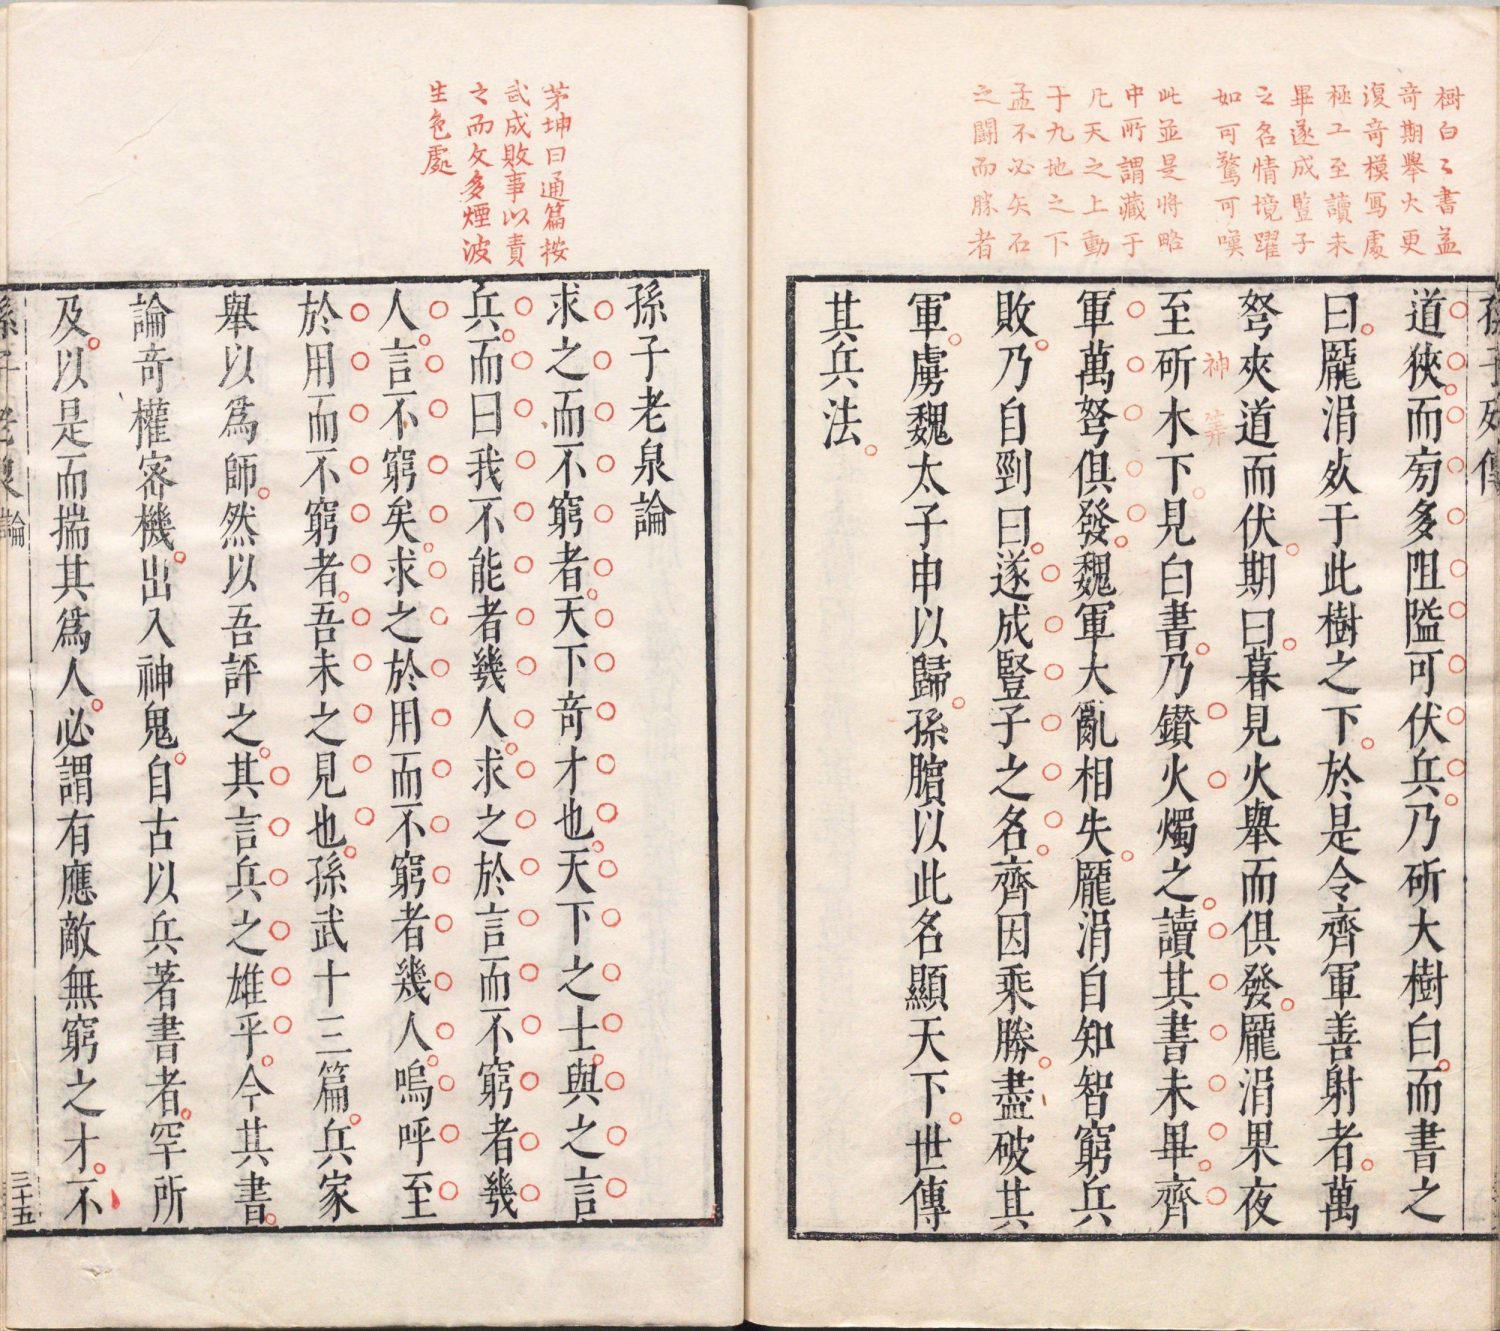 樹白之書益
奇期舉火更
復奇模寫處
極工至讀未
畢遂成豎子
之名情境躍
如可驚可嘆
此並是將略
中所謂藏于
九天之上動
于九地之下
孟不必矢石
之鬪而勝者
孫子列傳
道狹而旁多阻隘可伏兵乃斫大樹白而書之
曰龐涓死于此樹之下於是令齊軍善射者萬
弩夾道而伏期曰暮見火舉而俱發龐涓果夜
神算
至斫木下見白書乃鑚火燭之讀其書未畢齊
軍萬弩俱發魏軍大亂相失龐涓自知智窮兵
敗乃自剄曰遂成豎子之名齊因乘勝盡破其
軍虜魏太子申以歸孫臏以此名顯天下世傳
其兵法
茅坤曰通篇按
武成敗事以責
之而文多煙波
生色處
孫子老泉論
求之而不窮者天下奇才也天下之士與之言
兵而曰我不能者幾人求之於言而不窮者幾
人言不窮矣求之於用而不窮者幾人嗚呼至
於用而不窮者吾未之見也孫武十三篇兵家
舉以爲師然以吾評之其言兵之雄乎今其書
論奇權密機出入神鬼自古以兵著書者罕所
及以是而揣其爲人必謂有應敵無窮之才不
孫子老泉論
三十五